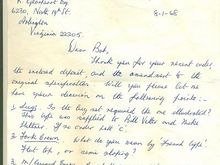 R. Eisenhart Esq. 8-1-68
6230, North 19th St.
Arlington
Virginia 22205.
Dear Bob,
Thank you for your recent order,
the enclosed deposit, and the amendment to the
original specification. Will you please let me
have your decision on the following points:-
1 dugs. Is the leg set required the one illustrated?
This type was supplied to Bill Vetter and Mike
If so order full 'C'.
2 Fork Crown. What do you mean by "French type"
Flat top, or semi sloping?
3